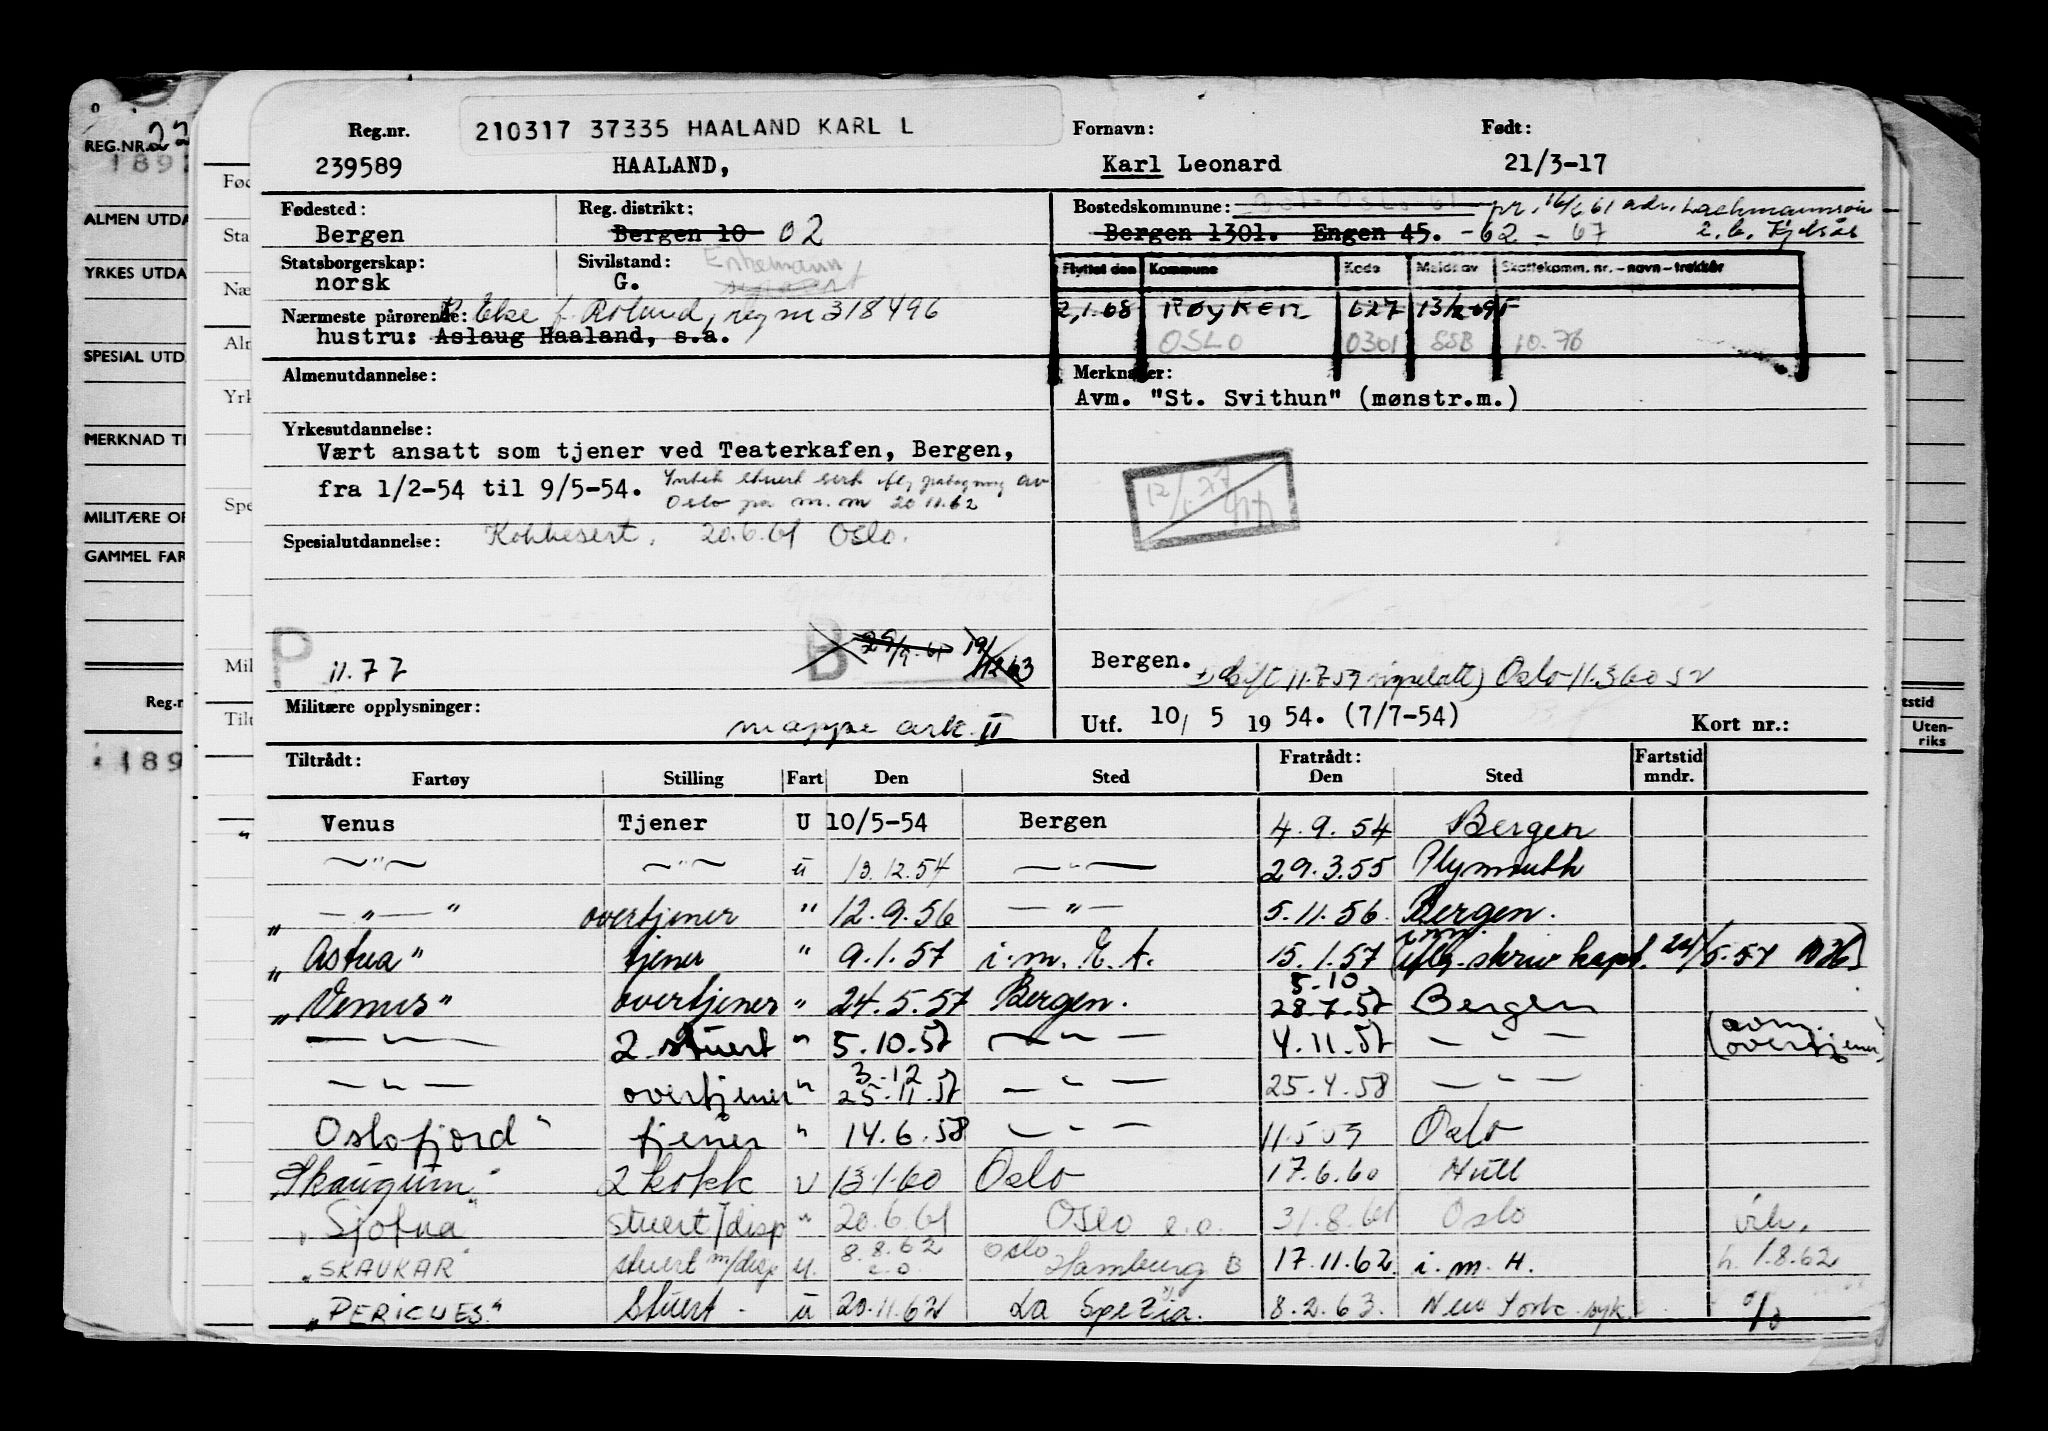 Reg.nr. 210317 37335 HAALAND KARL L Fornavn: Født:
239589 HAALAND, Karl Leonard 21/3-17
REG.NR. 22
189
ALMEN UTDA
YRKES UTDA
SPESIAL UTD
MERKNAD TI
MILITÆRE OP
GAMMEL FAR
Reg.n
189
Fød
Sta
Næ
Alr
Yrk
Spe
Mil
Tilt
Fødested: Reg. distrikt: Bostedskommune: pr. adr.
Bergen Bergen 10 02 Bergen 1301. Engen 45. -62 - 67
Statsborgerskap: Sivilstand: Enkemann
norsk G.
Flyttet den Kommune Kode Meldt av Skattekomm. nr. - navn - trekkår
Nærmeste pårørende: Else f. Roland, reg nr 318496
2.1.68 RØYKEN 627
hustru: Aslaug Haaland, s.a.
OSLO 0301 SSB 10.76
Almenutdannelse: Merknader:
Avm. "St. Svithun" (mønstr.m.)
Yrkesutdannelse:
Vært ansatt som tjener ved Teaterkafen, Bergen,
fra 1/2-54 til 9/5-54. stuert sert iflg av
Oslo på m.m 20 11.62
Spesialutdannelse: Kokkesert. 20.6.61 Oslo.
P 11.77 B 19/12 63
Bergen. 11.7.59 Oslo 11.3 60
Militære opplysninger: mappe ark. II
Utf. 10/ 5 19 54. (7/7-54) Kort nr.:
Tiltrådt: Fratrådt: Fartstid
Fartøy Stilling Fart Den Sted Den Sted mndr.
tstid
Uten-
riks
Venus Tjener U 10/5-54 Bergen 4.9.54 Bergen
—"— —"— u 13.12.54 —"— 29.3.55 Plymouth
" —"— " overtjener " 12.9.56 —"— 5.11.56. Bergen.
"Astrea" tjener " 9.1.57 i.m. E.A. 15.1.57 i.m. (iflg. skriv kapt. 24/5.57
5.10
"Venus" overtjener " 24.5.57 Bergen. 28.7.57 Bergen
—"— 2 stuert " 5.10.57 —"— 4.11.57 —"— (avm. overtjener)
3.12
—"— overtjener " 25.11.57 —"— 25.4.58 —"—
Oslofjord " tjener " 14.6.58 —"— 11.5 59 Oslo
"Skaugum" 2 kokk U 13.1.60 Oslo 17.6.60 Hull
"Sjofna" stuert/disp " 20.6.61 Oslo e.o. 31.8.61 Oslo
"SKAUKAR" stuert m/disp u. 8.8.62 e.o. Oslo Hamburg B 17.11.62 i.m.H. h. 1.8.62
"PERICLES." Stuert - u 20.11.62 La Spezia. 8.2.63. New York syk.